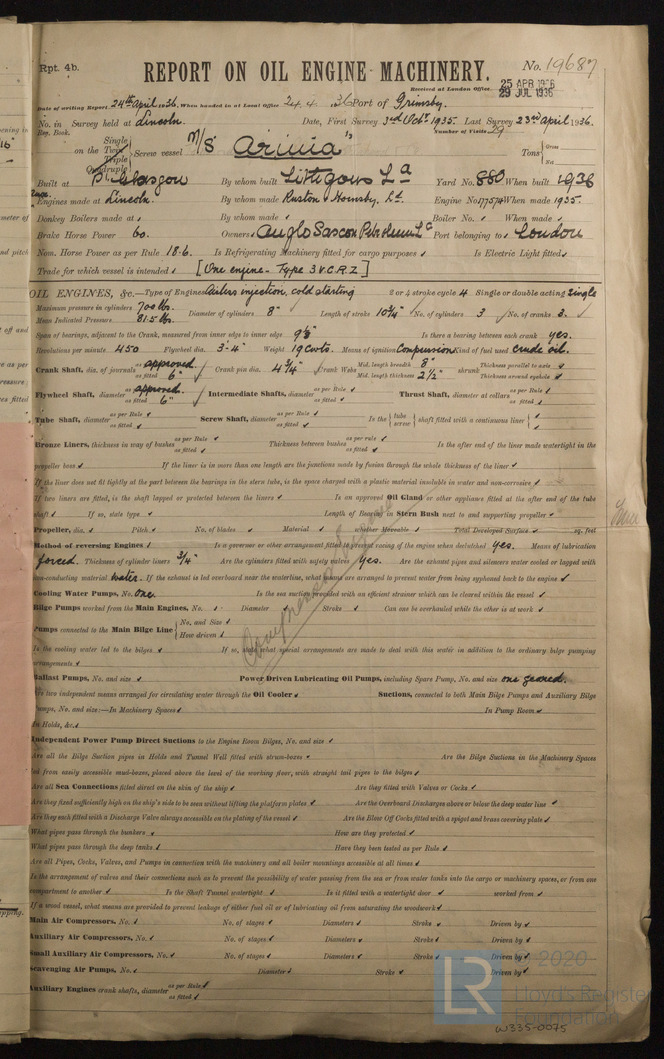 Rpt. 4b.
No. 19687
REPORT ON OIL ENGINE MACHINERY.
Received at London Office 25 APR 1936
29 JUL 1936
Date of writing Report 24th April 1936. When handed in at Local Office 24.4.1936 Port of Grimsby.
No. in Survey held at Lincoln. Date, First Survey 3rd Oct 1935. Last Survey 23rd April 1936.
Reg. Book. Number of Visits 29
on the Single Twin Triple Quadruple Screw vessel M/S Tons Gross Net
Built at Pt. Glasgow By whom built Lithgows Ld Yard No. 880 When built 1936
Engines made at Lincoln. By whom made Ruston & Hornsby, Ld. Engine No. 177574 When made 1935.
Donkey Boilers made at By whom made Boiler No. When made
Brake Horse Power 60. Owners Anglo Saxon Petroleum Ld Port belonging to London
Nom. Horse Power as per Rule 18.6. Is Refrigerating Machinery fitted for cargo purposes Is Electric Light fitted
Trade for which vessel is intended [One engine - Type 3 V.C.R.Z]
OIL ENGINES, &c.—Type of Engines Airless injection, cold starting 2 or 4 stroke cycle 4 Single or double acting Single
Maximum pressure in cylinders 700 lbs. Diameter of cylinders 8" Length of stroke 10 3/4" No. of cylinders 3 No. of cranks 3.
Mean Indicated Pressure 81.5 lbs.
Span of bearings, adjacent to the Crank, measured from inner edge to inner edge 9 5/8" Is there a bearing between each crank yes.
Revolutions per minute 450 Flywheel dia. 3'-4" Weight 19 cwts. Means of ignition Compression Kind of fuel used crude oil.
Crank Shaft, dia. of journals as per Rule approved. as fitted 6" Crank pin dia. 4 3/4" Crank Webs Mid. length breadth 8" Mid. length thickness 2 1/2" shrunk Thickness parallel to axis Thickness around eyehole
Flywheel Shaft, diameter as per Rule approved. as fitted 6" Intermediate Shafts, diameter as per Rule as fitted Thrust Shaft, diameter at collars as per Rule as fitted
Tube Shaft, diameter as per Rule as fitted Screw Shaft, diameter as per Rule as fitted Is the tube screw shaft fitted with a continuous liner
Bronze Liners, thickness in way of bushes as per Rule as fitted Thickness between bushes as per rule as fitted Is the after end of the liner made watertight in the
propeller boss If the liner is in more than one length are the junctions made by fusion through the whole thickness of the liner
If the liner does not fit tightly at the part between the bearings in the stern tube, is the space charged with a plastic material insoluble in water and non-corrosive
If two liners are fitted, is the shaft lapped or protected between the liners Is an approved Oil Gland or other appliance fitted at the after end of the tube
shaft If so, state type Length of Bearing in Stern Bush next to and supporting propeller
Propeller, dia. Pitch No. of blades Material whether Moveable Total Developed Surface sq. feet
Method of reversing Engines Is a governor or other arrangement fitted to prevent racing of the engine when declutched yes. Means of lubrication
forced. Thickness of cylinder liners 3/4" Are the cylinders fitted with safety valves Yes. Are the exhaust pipes and silencers water cooled or lagged with
non-conducting material water. If the exhaust is led overboard near the waterline, what means are arranged to prevent water from being syphoned back to the engine
Cooling Water Pumps, No. one. Is the sea suction provided with an efficient strainer which can be cleared within the vessel
Bilge Pumps worked from the Main Engines, No. Diameter Stroke Can one be overhauled while the other is at work
Pumps connected to the Main Bilge Line No. and Size How driven
Is the cooling water led to the bilges If so, state what special arrangements are made to deal with this water in addition to the ordinary bilge pumping
arrangements
Ballast Pumps, No. and size Power Driven Lubricating Oil Pumps, including Spare Pump, No. and size one geared.
Are two independent means arranged for circulating water through the Oil Cooler Suctions, connected to both Main Bilge Pumps and Auxiliary Bilge
Pumps, No. and size:—In Machinery Spaces In Pump Room
In Holds, &c.
Independent Power Pump Direct Suctions to the Engine Room Bilges, No. and size
Are all the Bilge Suction pipes in Holds and Tunnel Well fitted with strum-boxes Are the Bilge Suctions in the Machinery Spaces
led from easily accessible mud-boxes, placed above the level of the working floor, with straight tail pipes to the bilges
Are all Sea Connections fitted direct on the skin of the ship Are they fitted with Valves or Cocks
Are they fixed sufficiently high on the ship's side to be seen without lifting the platform plates Are the Overboard Discharges above or below the deep water line
Are they each fitted with a Discharge Valve always accessible on the plating of the vessel Are the Blow Off Cocks fitted with a spigot and brass covering plate
What pipes pass through the bunkers How are they protected
What pipes pass through the deep tanks Have they been tested as per Rule
Are all Pipes, Cocks, Valves, and Pumps in connection with the machinery and all boiler mountings accessible at all times
Is the arrangement of valves and their connections such as to prevent the possibility of water passing from the sea or from water tanks into the cargo or machinery spaces, or from one
compartment to another Is the Shaft Tunnel watertight Is it fitted with a watertight door worked from
If a wood vessel, what means are provided to prevent leakage of either fuel oil or of lubricating oil from saturating the woodwork
Main Air Compressors, No. No. of stages Diameters Stroke Driven by
Auxiliary Air Compressors, No. No. of stages Diameters Stroke Driven by
Small Auxiliary Air Compressors, No. No. of stages Diameters Stroke Driven by
Scavenging Air Pumps, No. Diameter Stroke Driven by
Auxiliary Engines crank shafts, diameter as per Rule as fitted
LR
© 2020
Lloyd's Register
Foundation
W335-0075